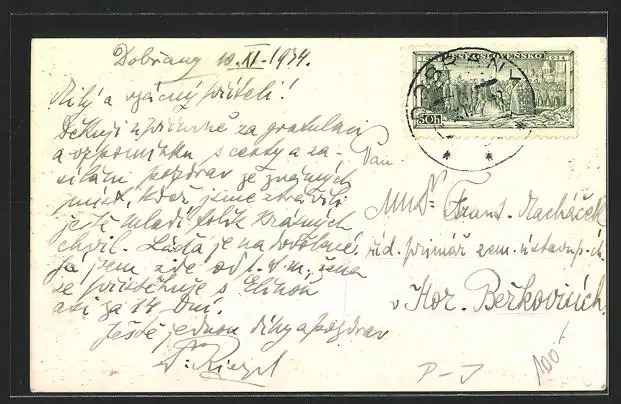 Dobřany 10.XI.1934.
Milý a vzácný příteli!
Děkuji upřímně za gratulaci
a vzpomínku s cesty a za-
sílám pozdrav ze známých
míst, kde jsme ztrávili
ještě mladí tolik krásných
chvil. Láďa je na dovolené,
já jsem zde od 1. t.m., žena
se přistěhuje s
asi za 14 dní.
Ještě jednou díky a pozdrav
ČESKOSLOVENSKO 1934
50h
Pan
MUDr. Frant. Macháček
řád. primář zem. ústavu p. ch.
v Hor. Beřkovicích.
P-J
100